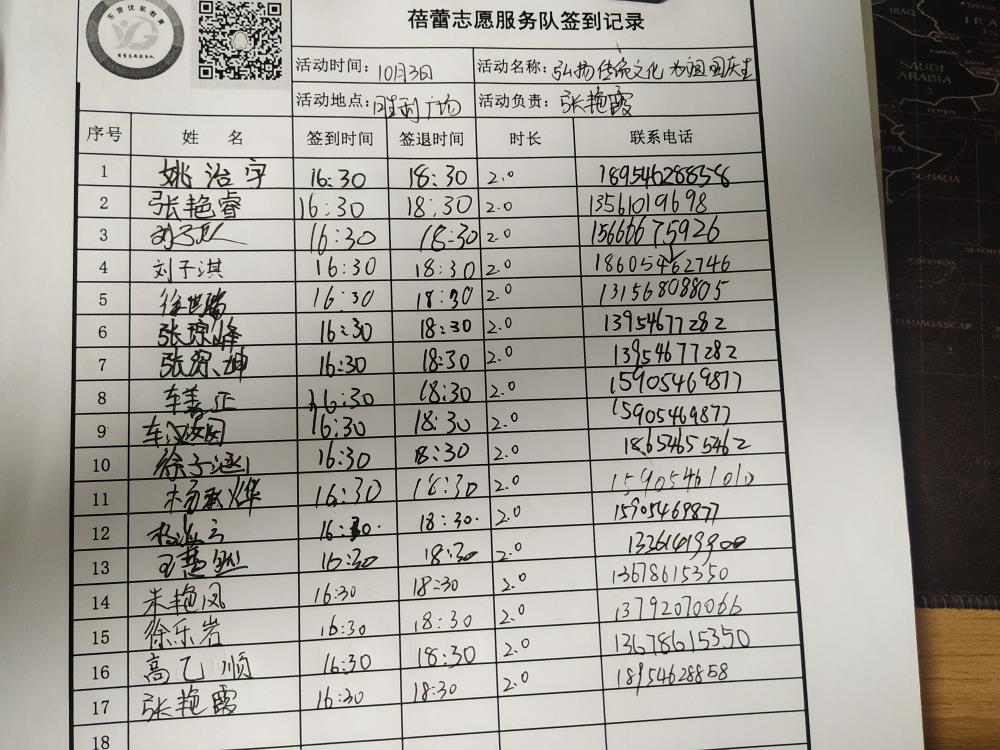 东营优采教育
YG
蓓蕾志愿服务队签到记录
活动时间: 10月3日 活动名称: 弘扬传统文化 为祖国庆生
活动地点: 胜利广场 活动负责: 张艳霞
序号 姓 名 签到时间 签退时间 时长 联系电话
1 姚治宇 16:30 18:30 2.0 18954628858
2 张艳睿 16:30 18:30 2.0 13561019698
3 16:30 18:30 2.0 15666675926
4 刘子淇 16:30 18:30 2.0 18605462746
5 徐世瑞 16:30 18:30 2.0 13156808805
6 张琮峰 16:30 18:30 2.0 13954677282
7 张琮坤 16:30 18:30 2.0 13954677282
8 车善正 16:30 18:30 2.0 15905469877
9 16:30 18:30 2.0 15905469877
10 徐子涵 16:30 18:30 2.0 18654655462
11 16:30 18:30 2.0 15905461010
12 16:30 18:30 2.0 15905469877
13 16:30 18:30 2.0 13361419900
14 朱艳凤 16:30 18:30 2.0 13678615350
15 徐乐岩 16:30 18:30 2.0 13792070066
16 高乙顺 16:30 18:30 2.0 13678615350
17 张艳霞 16:30 18:30 2.0 18954628858
18
SAUDI
ARABIA
SOMALIA
MADAGASCAR